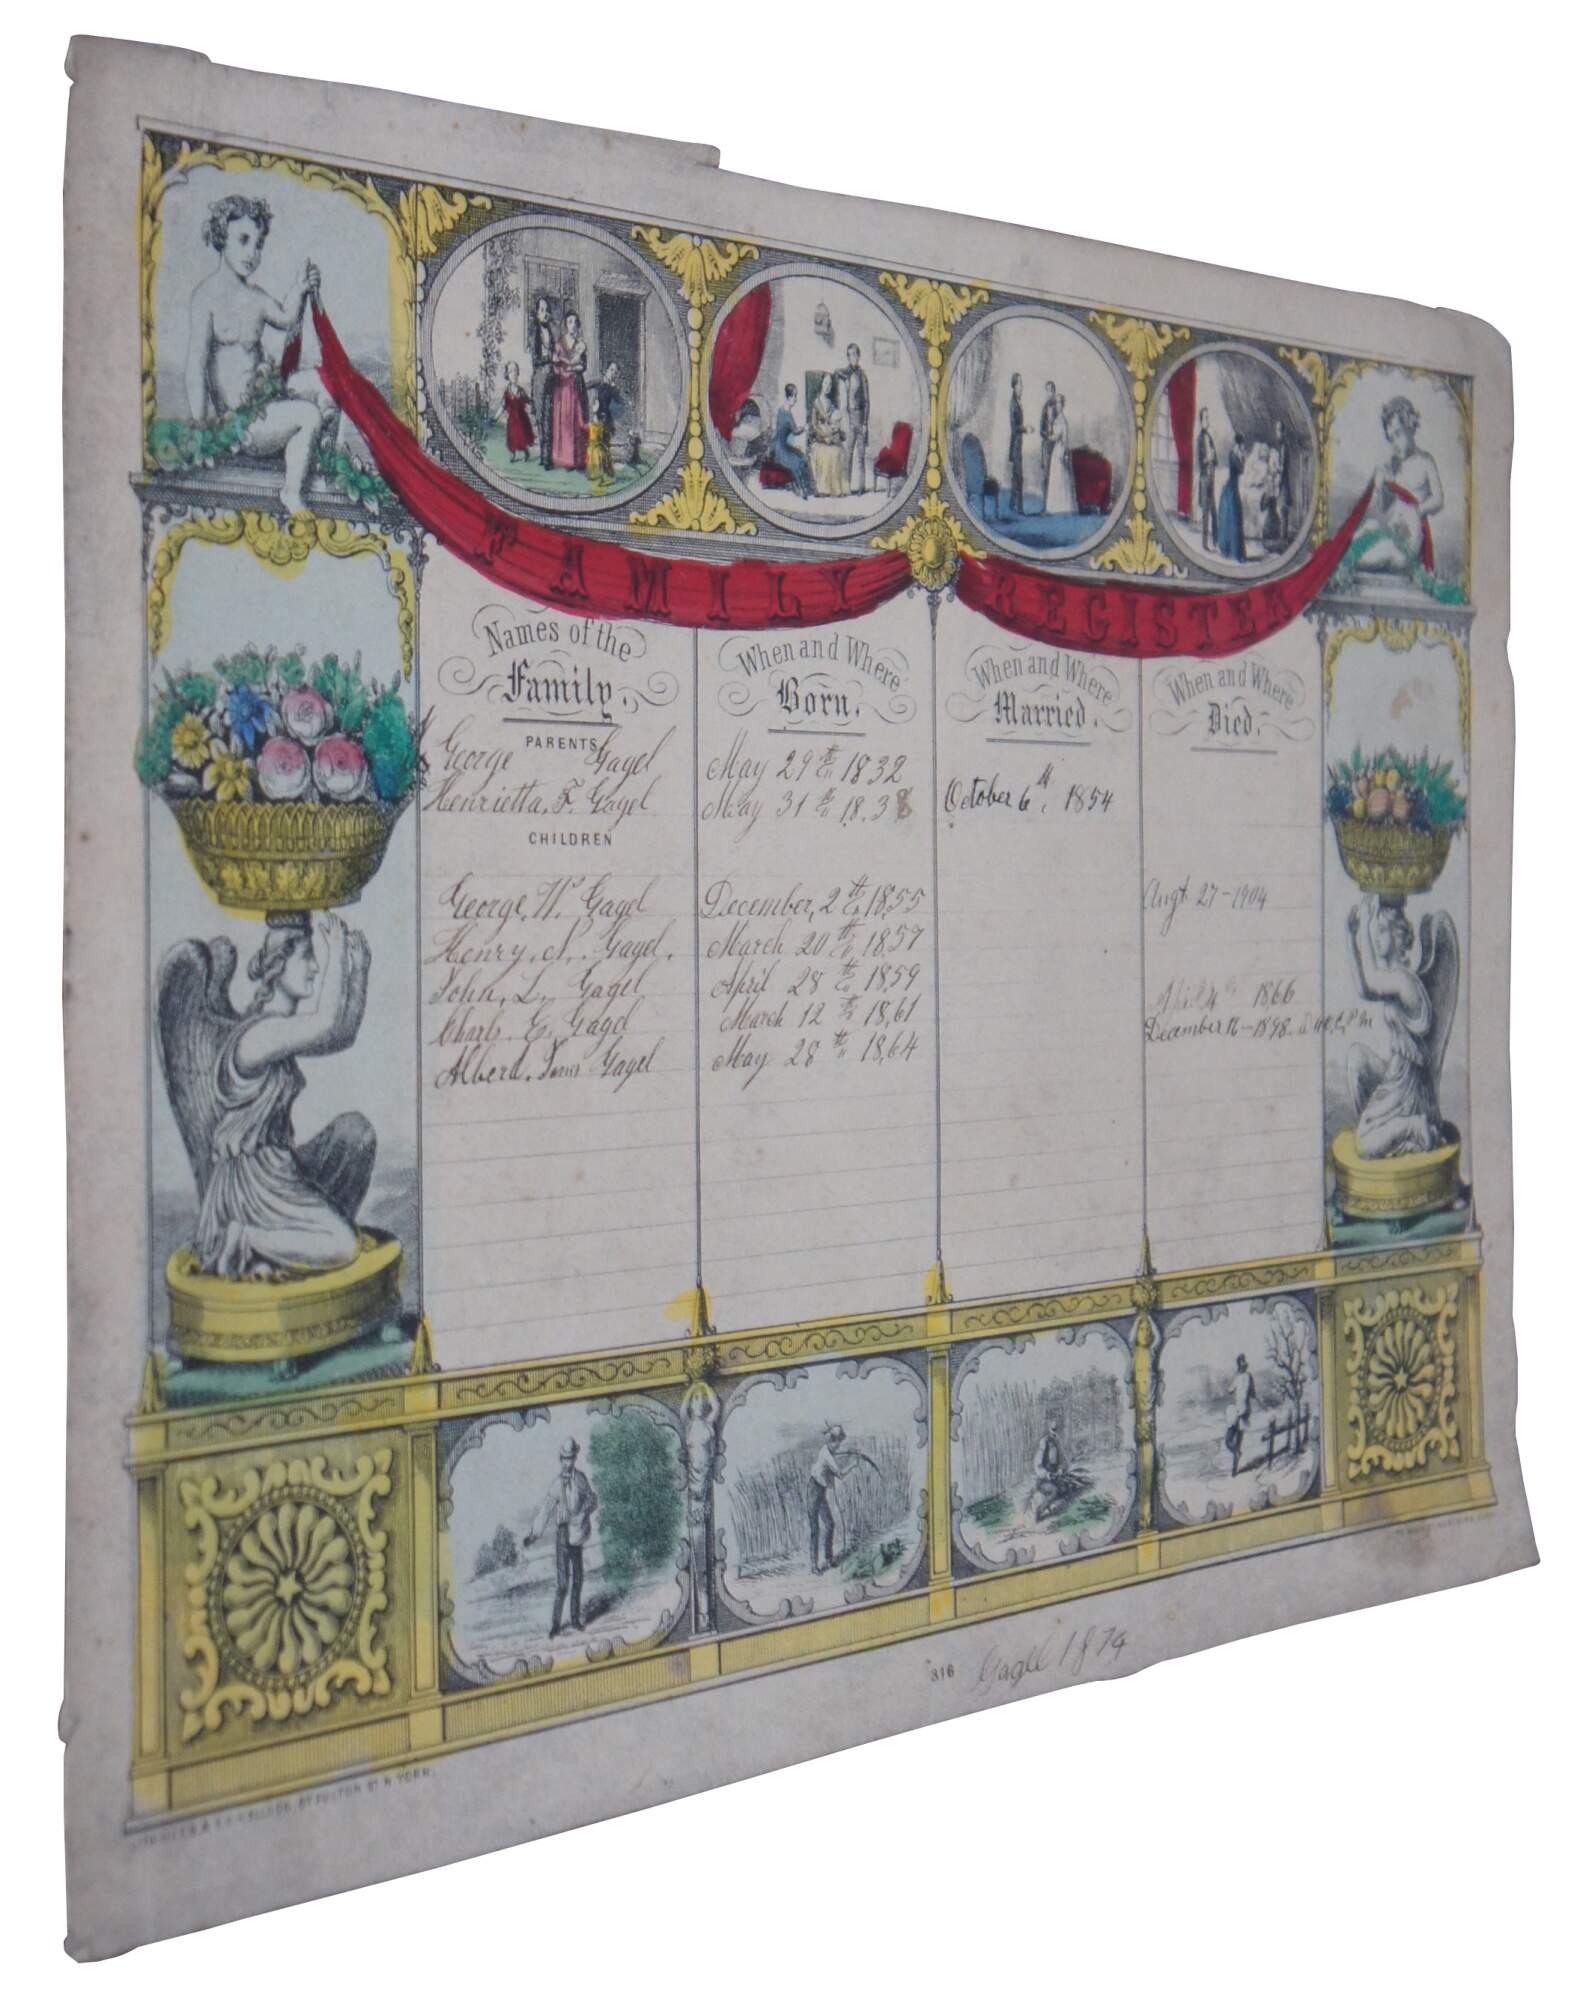 FAMILY REGISTER
Names of the Family.
When and Where Born.
When and Where Married.
When and Where Died.
PARENTS
George Gagel May 29th 1832
Henrietta, F. Gagel May 31th 18.38 October 6th, 1854
CHILDREN
George, W. Gagel December, 2th 1855 Augt 27-1904
Henry, N. Gagel. March 20th 1857
John, L. Gagel April 28th 1859 4th 1866
Charls. E. Gagel March 12th 1861 December 16-1898.
Alberd. Gagel May 28th 1864
316 Gagel 1879
KELLOGG, 87 FULTON ST N. YORK.